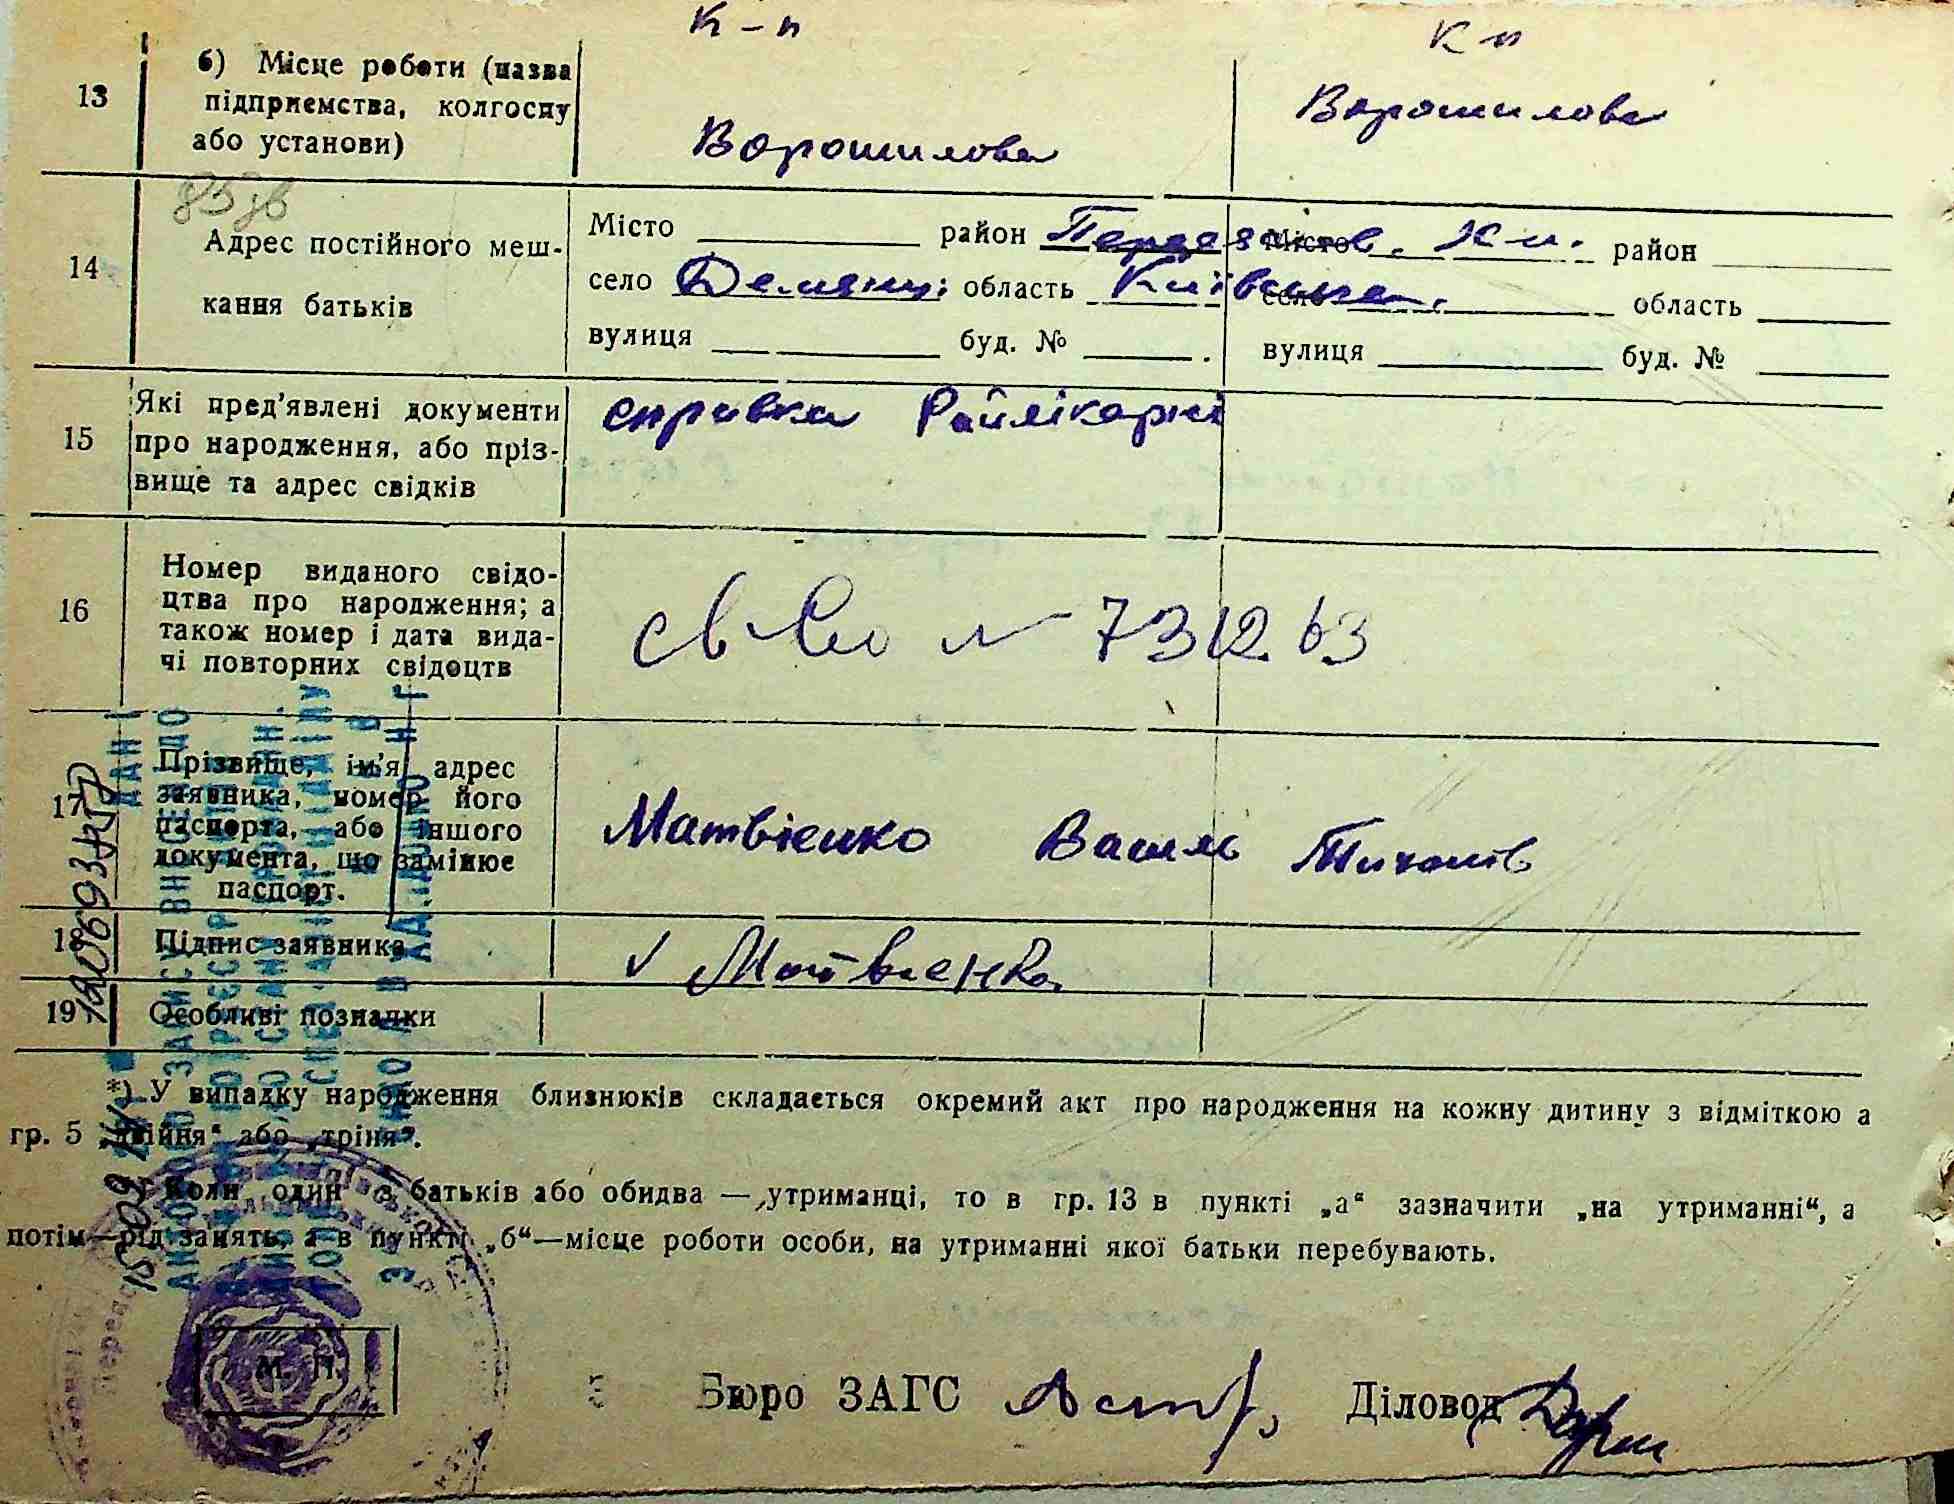 К-п
К п
13
б) Місце роботи (назва
підприємства, колгоспу
або установи)
Ворошилова
Ворошилова
14
Адрес постійного меш-
кання батьків
Місто район Місто район
село Демянці область Київська село область
вулиця буд. № вулиця буд. №
15
Які пред'явлені документи
про народження, або пріз-
вище та адрес свідків
справка Райлікарні
16
Номер виданого свідо-
цтва про народження; а
також номер і дата вида-
чі повторних свідоцтв
№ 731263
17
Прізвище, ім'я адрес
заявника, номер його
паспорта, або іншого
документа, що замінює
паспорт.
Матвієнко Василь Тихонів
18
Підпис заявника
Матвиенко
19
Особливі позначки
*) У випадку народження близнюків складається окремий акт про народження на кожну дитину з відміткою а
гр. 5 „двійня“ або „трійня“.
Коли один з батьків або обидва — утриманці, то в гр. 13 в пункті „а“ зазначити „на утриманні“, а
потім—рід занять, а в пункті „б“—місце роботи особи, на утриманні якої батьки перебувають.
М. П.
Бюро ЗАГС Діловод